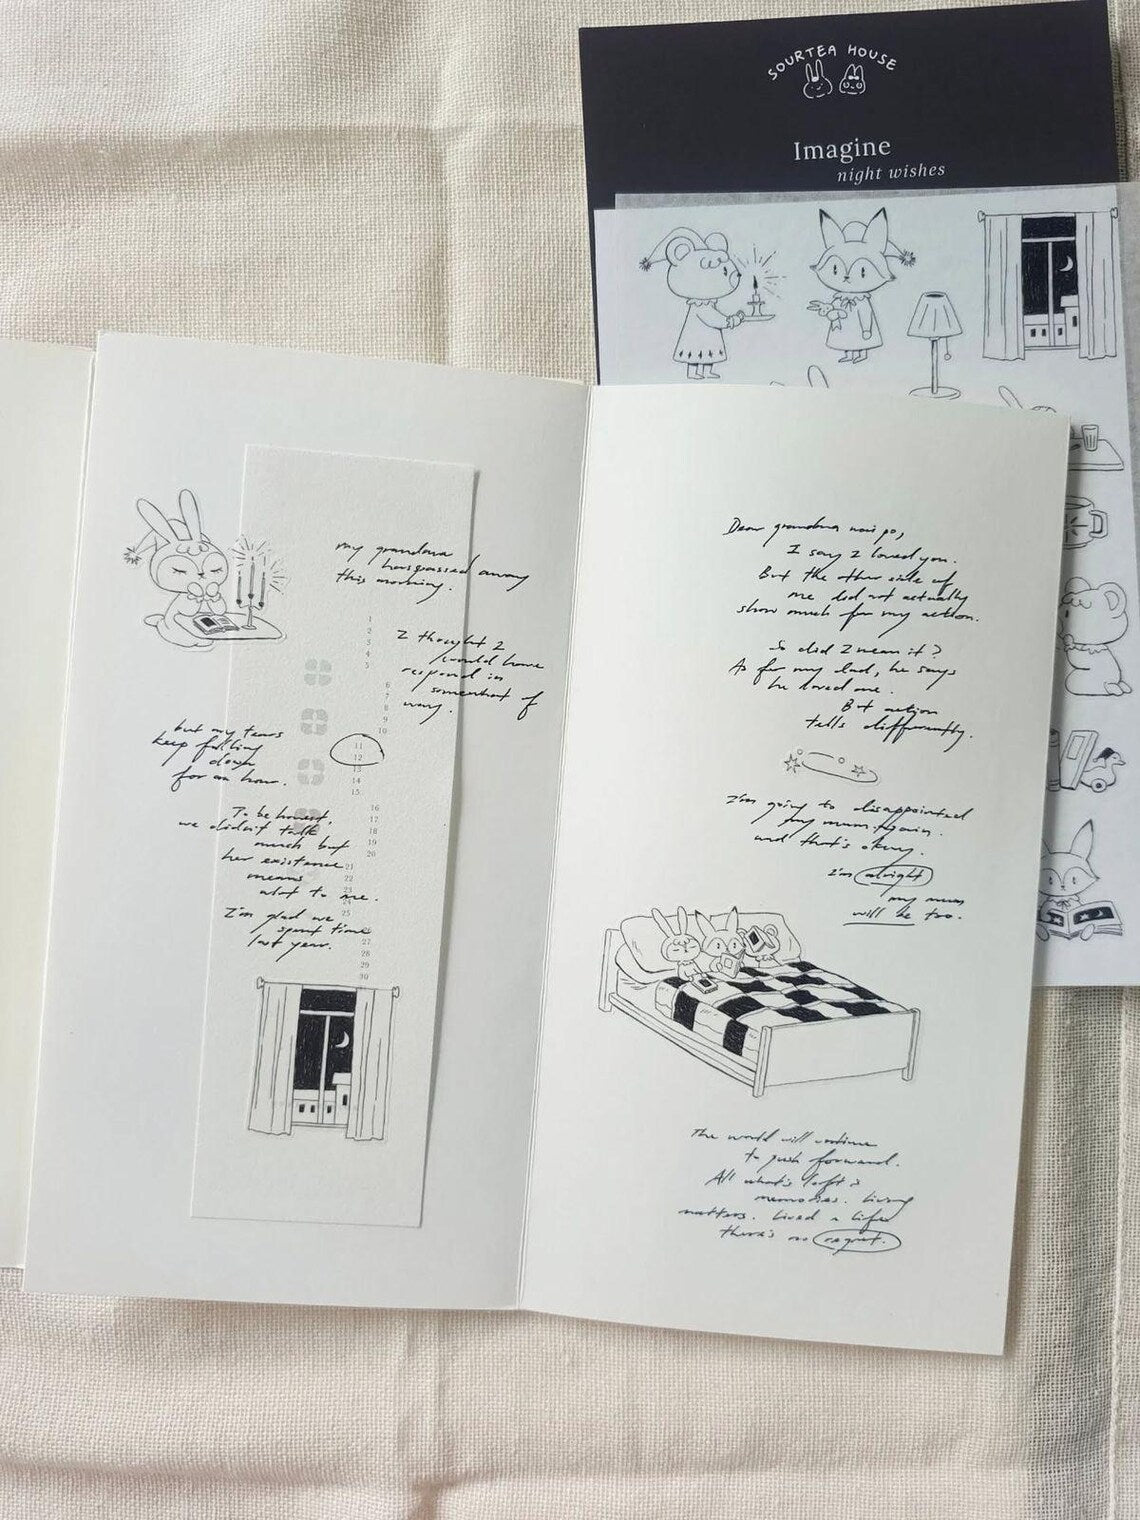 SOURTEA HOUSE
Imagine
night wishes
my grandma
has passed away
this morning.
I thought I
would have
respond in
somewhat of
way.
but my tears
keep falling
down
for an hour.
To be honest,
we didn't talk
much but
her existence
means
alot to me.
I'm glad we
spent time
last year.
1
2
3
4
5
6
7
8
9
10
11
12
13
14
15
16
17
18
19
20
21
22
23
24
25
27
28
29
30
Dear grandma wai po,
I say I loved you.
But the other side of
me did not actually
show much for my action.
So did I mean it?
As for my dad, he says
he loved me.
But action
tells differently.
I'm going to disappointed
my mum again.
and that's okay.
I'm alright
my mum
will be too.
The world will continue
to push forward.
All what's left is
memories. Living
matters. Lived a life
there's no regret.